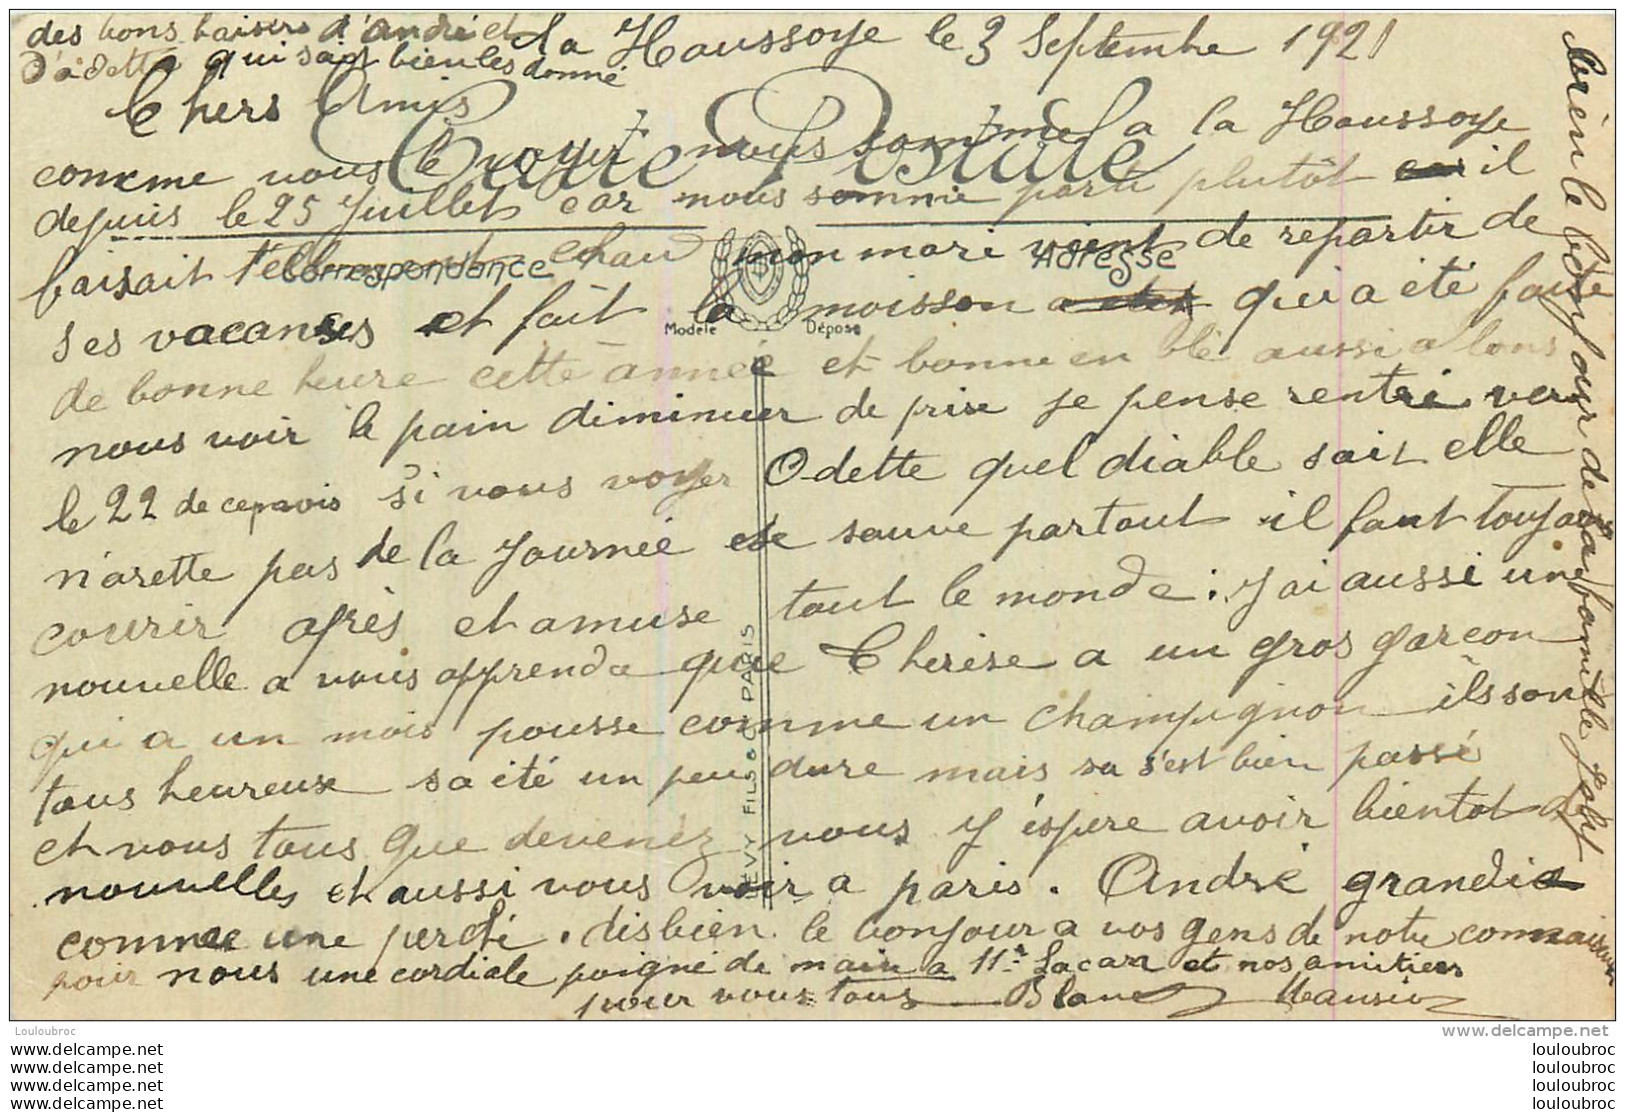 des bons baisers d'andré et
d'adette qui sait bien les donné
la Haussoye le 3 Septembre 1921
Chers Amis
Carte Postale
comme vous le voyer nous somme a la Haussoye
depuis le 25 Juillet car nous somme parti plutôt car il
faisait tellement chaud mon mari vient de repartir de
Correspondance
Adresse
ses vacanses et fait la moisson a qui a été faite
Modèle Déposé
de bonne heure cette année et bonne en blé aussi alons
nous voir le pain diminuer de prix je pense rentré vers
le 22 de ce mois si vous voyer Odette quel diable sait elle
n'arette pas de la journée se sauve partout il faut toujours
courir après et amuse tout le monde. J'ai aussi une
nouvelle a vous apprendre que Therèse a un gros garçon
qui a un mois pousse comme un champignon ils son
tous heureuse sa été un peu dure mais sa s'est bien passé
et vous tous que devenez vous j'éspere avoir bientot de
nouvelles et aussi vous voir a paris. André grandie
comme une perche. dis bien le bonjour a vos gens de notre connaissance
pour nous une cordiale poigné de main a Mr Lacan et nos amitiers
pour vous tous Blanche
LEVY FILS & Cie PARIS
bien le bonjour de la famille
Louloubroc
www.delcampe.net
www.delcampe.net louloubroc
www.delcampe.net louloubroc
www.delcampe.net louloubroc
www.delcampe.net louloubroc